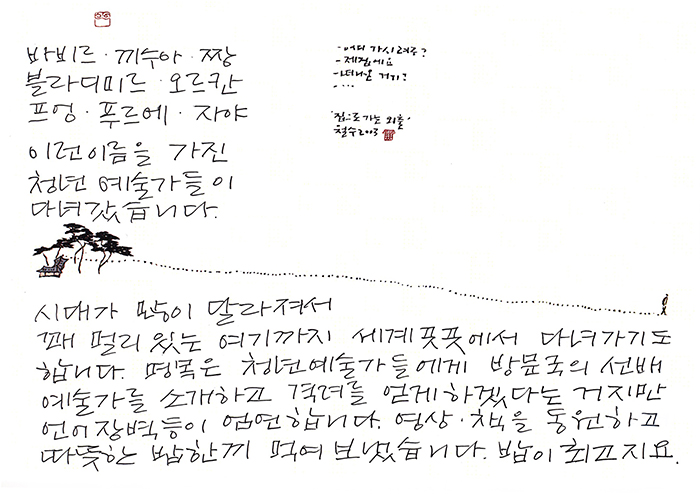 바비르 · 끼수아 · 짱
블라디미르 · 오르칸
프엉 · 푸르에 · 자야
이런이름을 가진
청년 예술가들이
다녀갔습니다.
- 어디 가시려구?
- 제집에요
- 떠나온 거기?
- …
'집으로 가는 외출'
철수2013
시대가 많이 달라져서
꽤 멀리 있는 여기까지 세계곳곳에서 다녀가기도
합니다. 명목은 청년예술가들에게 방문국의 선배
예술가를 소개하고 격려를 얻게하겠다는 거지만
언어장벽등이 엄연합니다. 영상 · 책을 동원하고
따뜻한 밥한끼 먹여 보냈습니다. 밥이 최고지요.